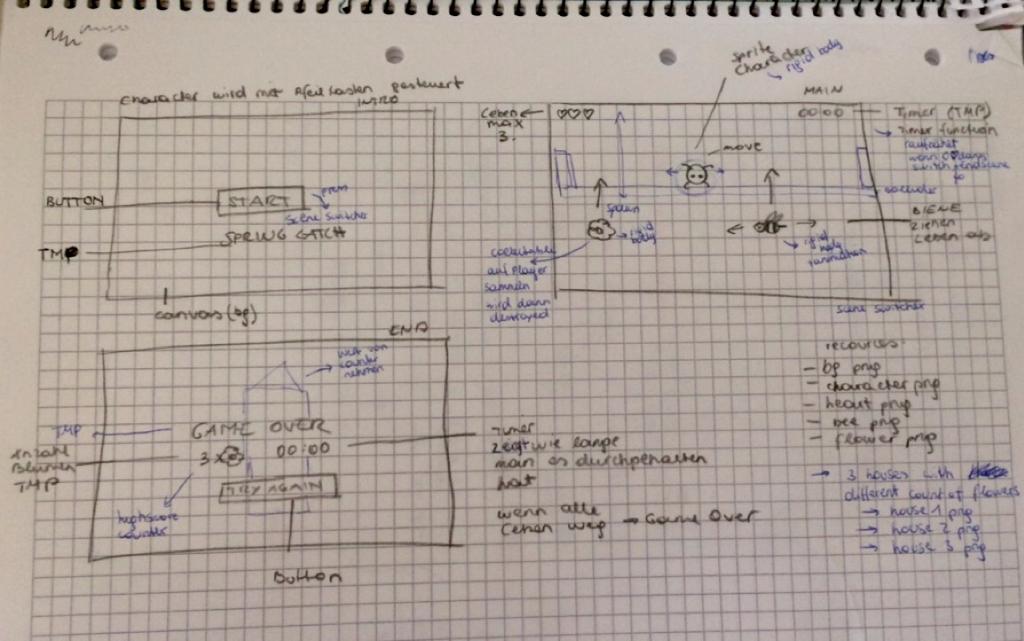 Character wird mit Pfeiltasten gesteuert
INTRO
BUTTON
START
press
scene switcher
SPRING CATCH
TMP
canvas (bg)
sprite
character
rigid body
MAIN
Leben
max
3.
00:00
Timer (TMP)
Timer function
move
spawn
rigid
body
collectable
auf Player
sammeln
wird dann
destroyed
rigid
body
BIENE
ziehen
Leben ab
scene switcher
END
wert von
counter
nehmen
TMP
GAME OVER
Anzahl
Blumen
TMP
3 x
00:00
TRY AGAIN
highscore
counter
Button
Timer
zeigt wie lange
man es durchgehalten
hat
wenn alle
Leben weg → Game Over
recources:
- bg png
- character png
- heart png
- bee png
- flower png
→ 3 houses with
different count of flowers
→ house 1 png
→ house 2 png
→ house 3 png